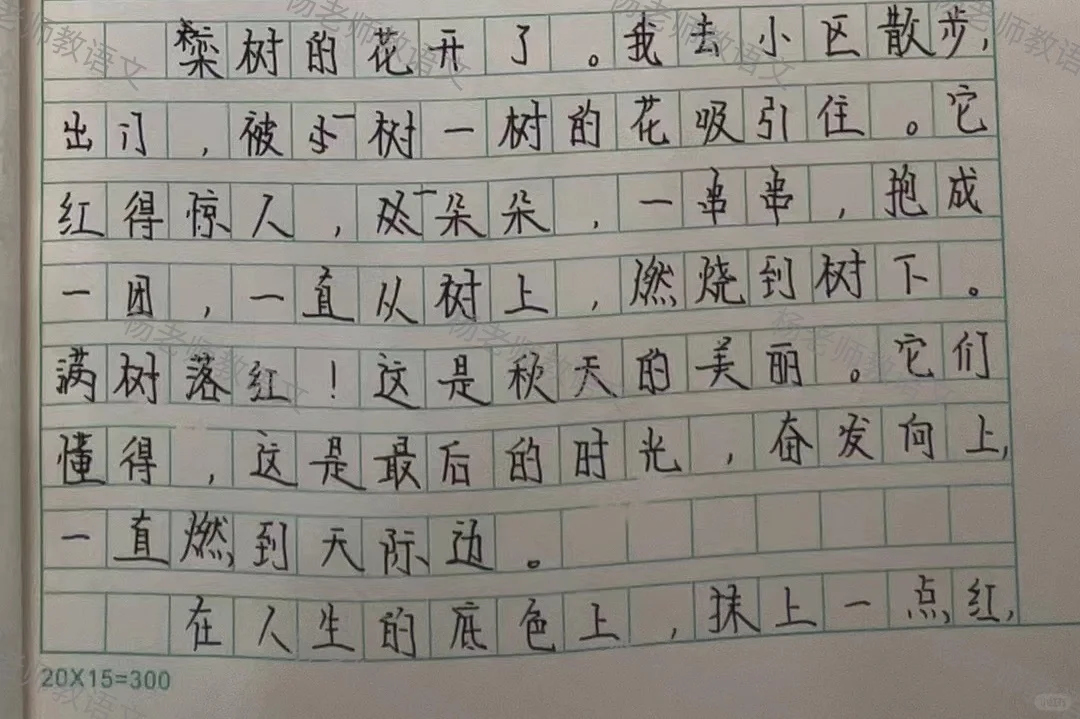 栾树的花开了。我去小区散步,
出门,被一树一树的花吸引住。它
红得惊人,一朵朵,一串串,抱成
一团,一直从树上,燃烧到树下。
满树落红!这是秋天的美丽。它们
懂得,这是最后的时光,奋发向上,
一直燃到天际边。
在人生的底色上,抹上一点红,
20X15=300
杨老师教语文